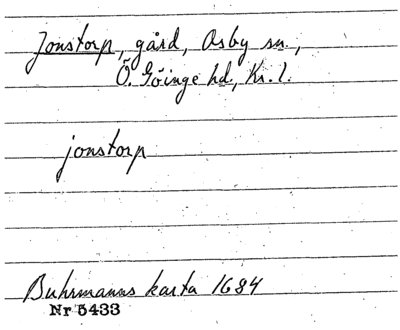 Jonstorp, gård, Osby sn.,
Ö. Göinge hd., Kr. l.
jonstorp
Buhrmanns karta 1684
Nr 5433